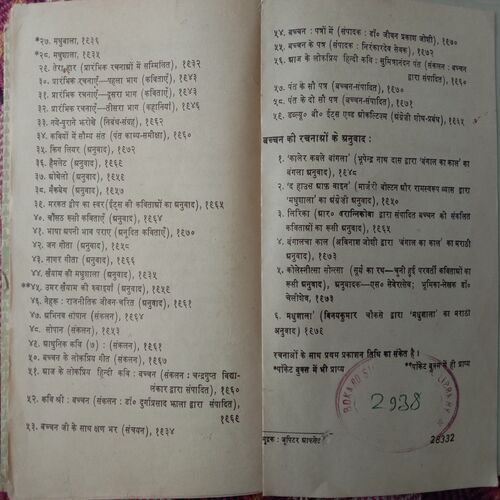 *२७. मधुबाला, १९३६
*२८. मधुशाला, १९३५
२९. तेरा हार (प्रारंभिक रचनाओं में सम्मिलित), १९३२
३०. प्रारंभिक रचनाएँ—पहला भाग (कविताएँ), १९४३
३१. प्रारंभिक रचनाएँ—दूसरा भाग (कविताएँ), १९४३
३२. प्रारंभिक रचनाएँ—तीसरा भाग (कहानियाँ), १९४६
३३. नये-पुराने झरोखे (निबंध-संग्रह), १९६२
३४. कवियों में सौम्य संत (पंत काव्य-समीक्षा), १९६०
३५. किंग लियर (अनुवाद), १९७२
३६. हैमलेट (अनुवाद), १९६९
३७. ओथेलो (अनुवाद), १९५९
३८. मैकबेथ (अनुवाद), १९५७
३९. मरकत द्वीप का स्वर (ईट्स की कविताओं का अनुवाद), १९६५
४०. चौंसठ रूसी कविताएँ (अनुवाद), १९६४
४१. भाषा अपनी भाव पराए (अनूदित कविताएँ), १९७०
४२. जन गीता (अनुवाद), १९५८
४३. नागर गीता (अनुवाद), १९६६
४४. खैयाम की मधुशाला (अनुवाद), १९३५
**४५. उमर खैयाम की रुबाइयाँ (अनुवाद), १९५९
४६. नेहरू : राजनीतिक जीवन-चरित (अनुवाद), १९६१
४७. अभिनव सोपान (संकलन), १९६४
४८. सोपान (संकलन), १९५३
४९. आधुनिक कवि (७) : (संकलन), १९६१
५०. बच्चन के लोकप्रिय गीत (संकलन), १९६७
५१. आज के लोकप्रिय हिन्दी कवि : बच्चन (संकलन : चन्द्रगुप्त विद्या-
लंकार द्वारा संपादित), १९६०
५२. कवि श्री : बच्चन (संकलन : डॉ० दुर्गाप्रसाद झाला द्वारा संपादित),
१९६९
५३. बच्चन जी के साथ क्षण भर (संचयन), १९३४
५४. बच्चन : पत्रों में (संपादक : डॉ० जीवन प्रकाश जोशी), १९७०
५५. बच्चन के पत्र (संपादक : निरंकारदेव सेवक), १९७२
५६. आज के लोकप्रिय हिन्दी कवि : सुमित्रानंदन पंत (संकलन : बच्चन
द्वारा संपादित), १९६०
५७. पंत के सौ पत्र (बच्चन-संपादित), १९७०
५८. पंत के दो सौ पत्र (बच्चन-संपादित), १९७१
५९. डब्ल्यू० बी० ईट्स एण्ड ओकल्टिज्म (अंग्रेजी शोध-प्रबंध), १९६५
बच्चन की रचनाओं के अनुवाद :
१. 'कालेर कवले वांगला' (भूपेन्द्र नाथ दास द्वारा 'बंगाल का काल' का
बंगला अनुवाद), १९४८
२. 'द हाउस आफ़ वाइन' (मार्जरी बोल्टन और रामस्वरूप व्यास द्वारा
'मधुशाला' का अंग्रेजी अनुवाद), १९५०
३. लिरिका (आर० वरान्निकोवा द्वारा संपादित बच्चन की संकलित
कविताओं का रूसी अनुवाद), १९६५
४. बंगालचा काल (अविनाश जोशी द्वारा 'बंगाल का काल' का मराठी
अनुवाद), १९७३
५. (सूर्य का रथ—चुनी हुई परवर्ती कविताओं का
रूसी अनुवाद), अनुवादक—एस० सेवेरसेव; भूमिका-लेखक डॉ०
चेलीशेव, १९७३
६. मधुशाला (विजयकुमार चौकसे द्वारा 'मधुशाला' का मराठी
अनुवाद) १९७९
रचनाओं के साथ प्रथम प्रकाशन तिथि का संकेत है।
*पॉकेट बुक्स में भी प्राप्य **पॉकेट बुक्स में ही प्राप्य
BOKARO LIBRARY
2938
मुद्रक : जुपिटर आफसेट
28332